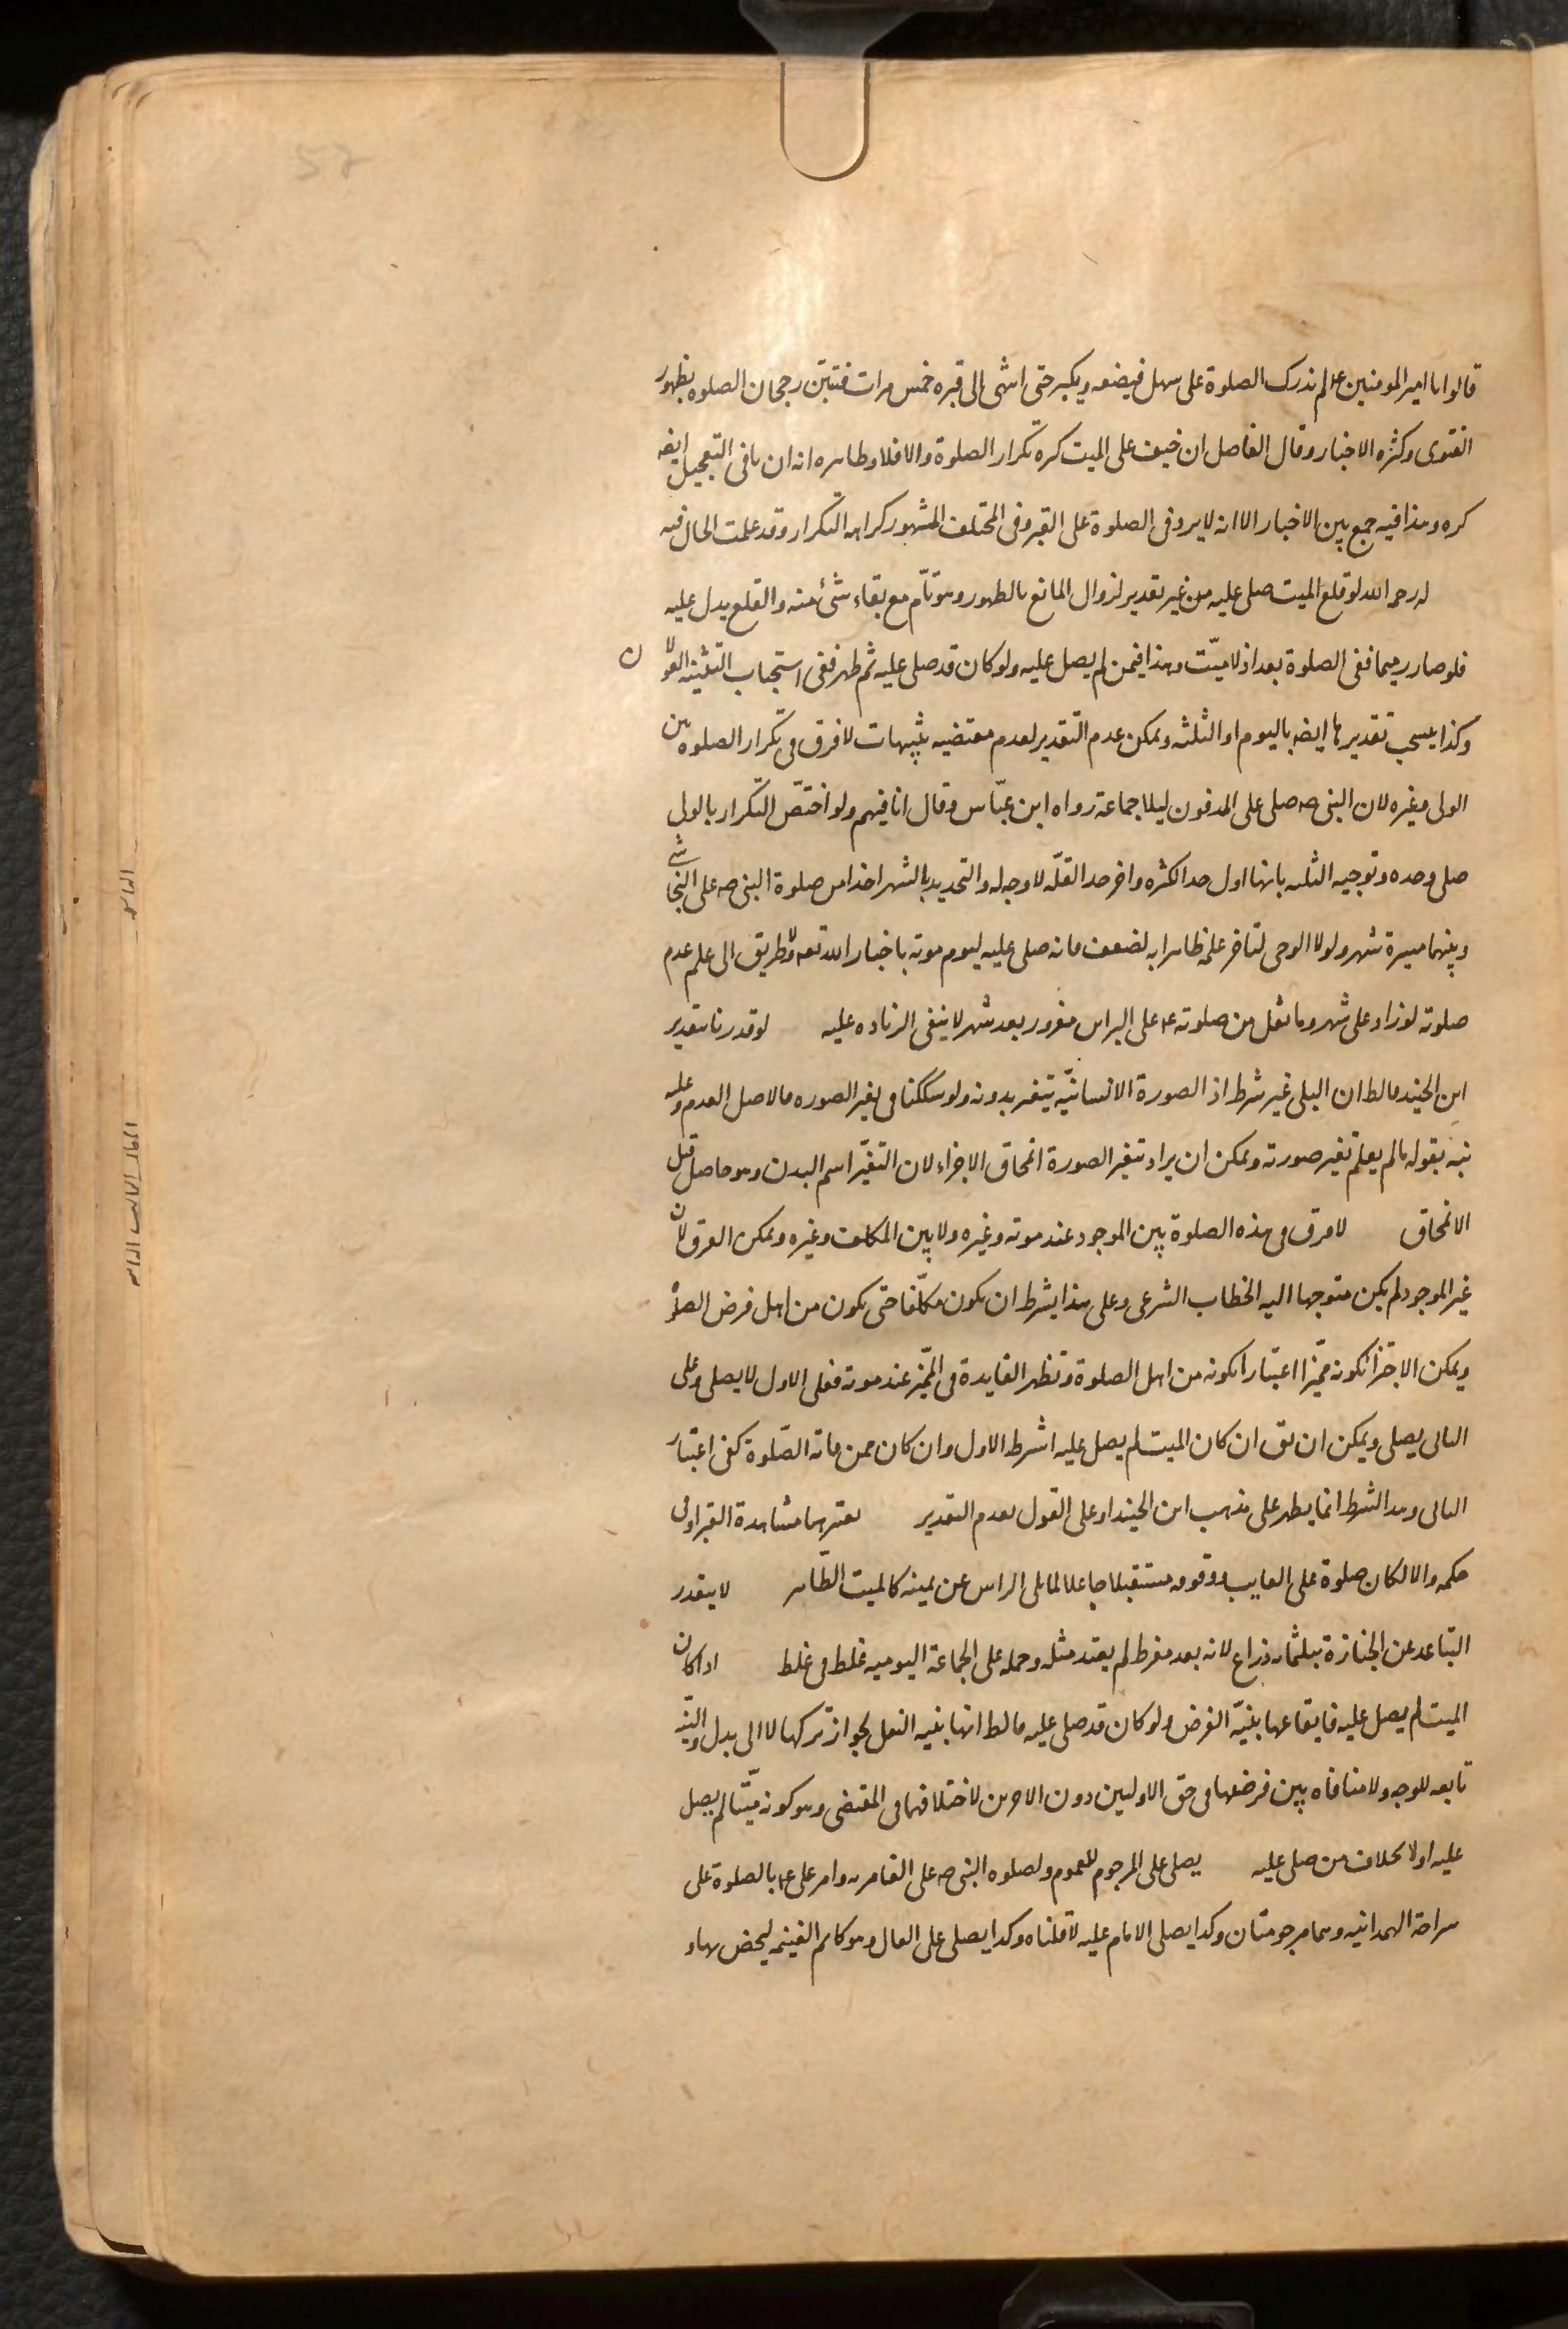 قالوا یا امیر المومنین ع لم ندرک الصلوة علی سهل فیضعه ویکبر حتی انتهی الی قبره خمس مرات فتبیّن رجحان الصلوه بظهور
الفتوی وکثره الاخبار وقال الفاضل ان خیف علی المیت کره تکرار الصلوة والا فلا وظاهره انه ان نافی التعجیل ایضا
کره وهذا فیه جمع بین الاخبار الا انه لا یرد فی الصلوة علی القبر وفی المختلف المشهور کراهه التکرار وقد علمت الحال فیه
له رحمه الله لو قلع المیت صلی علیه من غیر تقدیر لزوال المانع بالظهور وهو تامّ مع بقاء شئ منه والقلع یدل علیه
فلو صار رمیما ففی الصلوة بعد اذ لا میّت وهذا فیمن لم یصل علیه ولو کان قد صلی علیه ثم ظهر ففی استحباب التثنیه القولان
وکذا یسحب تقدیرها ایضا بالیوم او الثلثه ویمکن عدم التقدیر لعدم مقتضیه تنبیهات لا فرق فی تکرار الصلوه بین
الولی وغیره لان النبی ص صلی علی المدفون لیلا جماعة رواه ابن عبّاس وقال انا فیهم ولو اختصّ التکرار بالولی
صلی وحده وتوجیه الثلثه بانها اول حد الکثره واخر حد القلّه لا وجه له والتحدید بالشهر اخذا من صلوة النبی ص علی النجاشی
وبینهما مسیرة شهر ولولا الوحی لتاخر علمه ظاهرا به لضعف فانه صلی علیه لیوم موته باخبار الله تعه ولا طریق الی علم عدم
صلوته لو زاد علی شهر وما نقل من صلوته ع علی البراء بن معرور بعد شهر لا ینفی الزیاده علیه لو قدرنا بتقدیر
ابن الجنید فالظ ان البلی غیر شرط اذ الصورة الانسانیّه تتغیر بدونه ولو شککنا فی تغیر الصوره فالاصل العدم وعلیه
نبّه بقوله ما لم یعلم تغیر صورته ویمکن ان یراد بتغیر الصورة انمحاق الاجزاء لان التغیّر اسم البدن وهو حاصل قبل
الانمحاق لا فرق فی هذه الصلوة بین الموجود عند موته وغیره ولا بین المکلف وغیره ویمکن الفرق لان
غیر الموجود لم یکن متوجها الیه الخطاب الشرعی وعلی هذا یشرط ان یکون مکلّفا حتی یکون من اهل فرض الصلوة
ویمکن الاجتزا بکونه ممیّزا اعتبارا بکونه من اهل الصلوة وتظهر الفایدة فی الممیّز عند موته فعلی الاول لا یصلی وعلی
الثانی یصلی ویمکن ان یق ان کان المیت لم یصل علیه اشرط الاول وان کان ممن فاته الصّلوة کفی اعتبار
الثانی وهذا الشرط انما یظهر علی مذهب ابن الجنید او علی القول بعدم التقدیر یعتبر هنا مشاهدة القبر او فی
حکمه والا لکان صلوة علی الغایب ووقوفه مستقبلا جاعلا لما یلی الراس عن یمینه کالمیت الظّاهر لا یتقدر
التباعد عن الجنازة بثلثمائه ذراع لانه بعد مفرط لم یعتد مثله وحمله علی الجماعة الیومیه غلط فی غلط اذا کان
المیت لم یصل علیه فایقاعها بنیّة الفرض ولو کان قد صلی علیه فالظ انها بنیه النفل لجواز ترکها لا الی بدل والنیّه
تابعه للوجه ولا منافاه بین فرضها فی حق الاولین دون الاخرین لاختلافهما فی المقتضی وهو کونه میّتا لم یصل
علیه اولا بخلاف من صلی علیه یصلی علی المرجوم للعموم ولصلوه النبی ص علی الغامدیه وامر علی ع بالصلوة علی
سراحة الهمدانیه وهما مرجومتان وکذا یصلی الامام علیه لما قلناه وکذا یصلی علی الغال وهو کاتم الغنیمه لیختص بها و